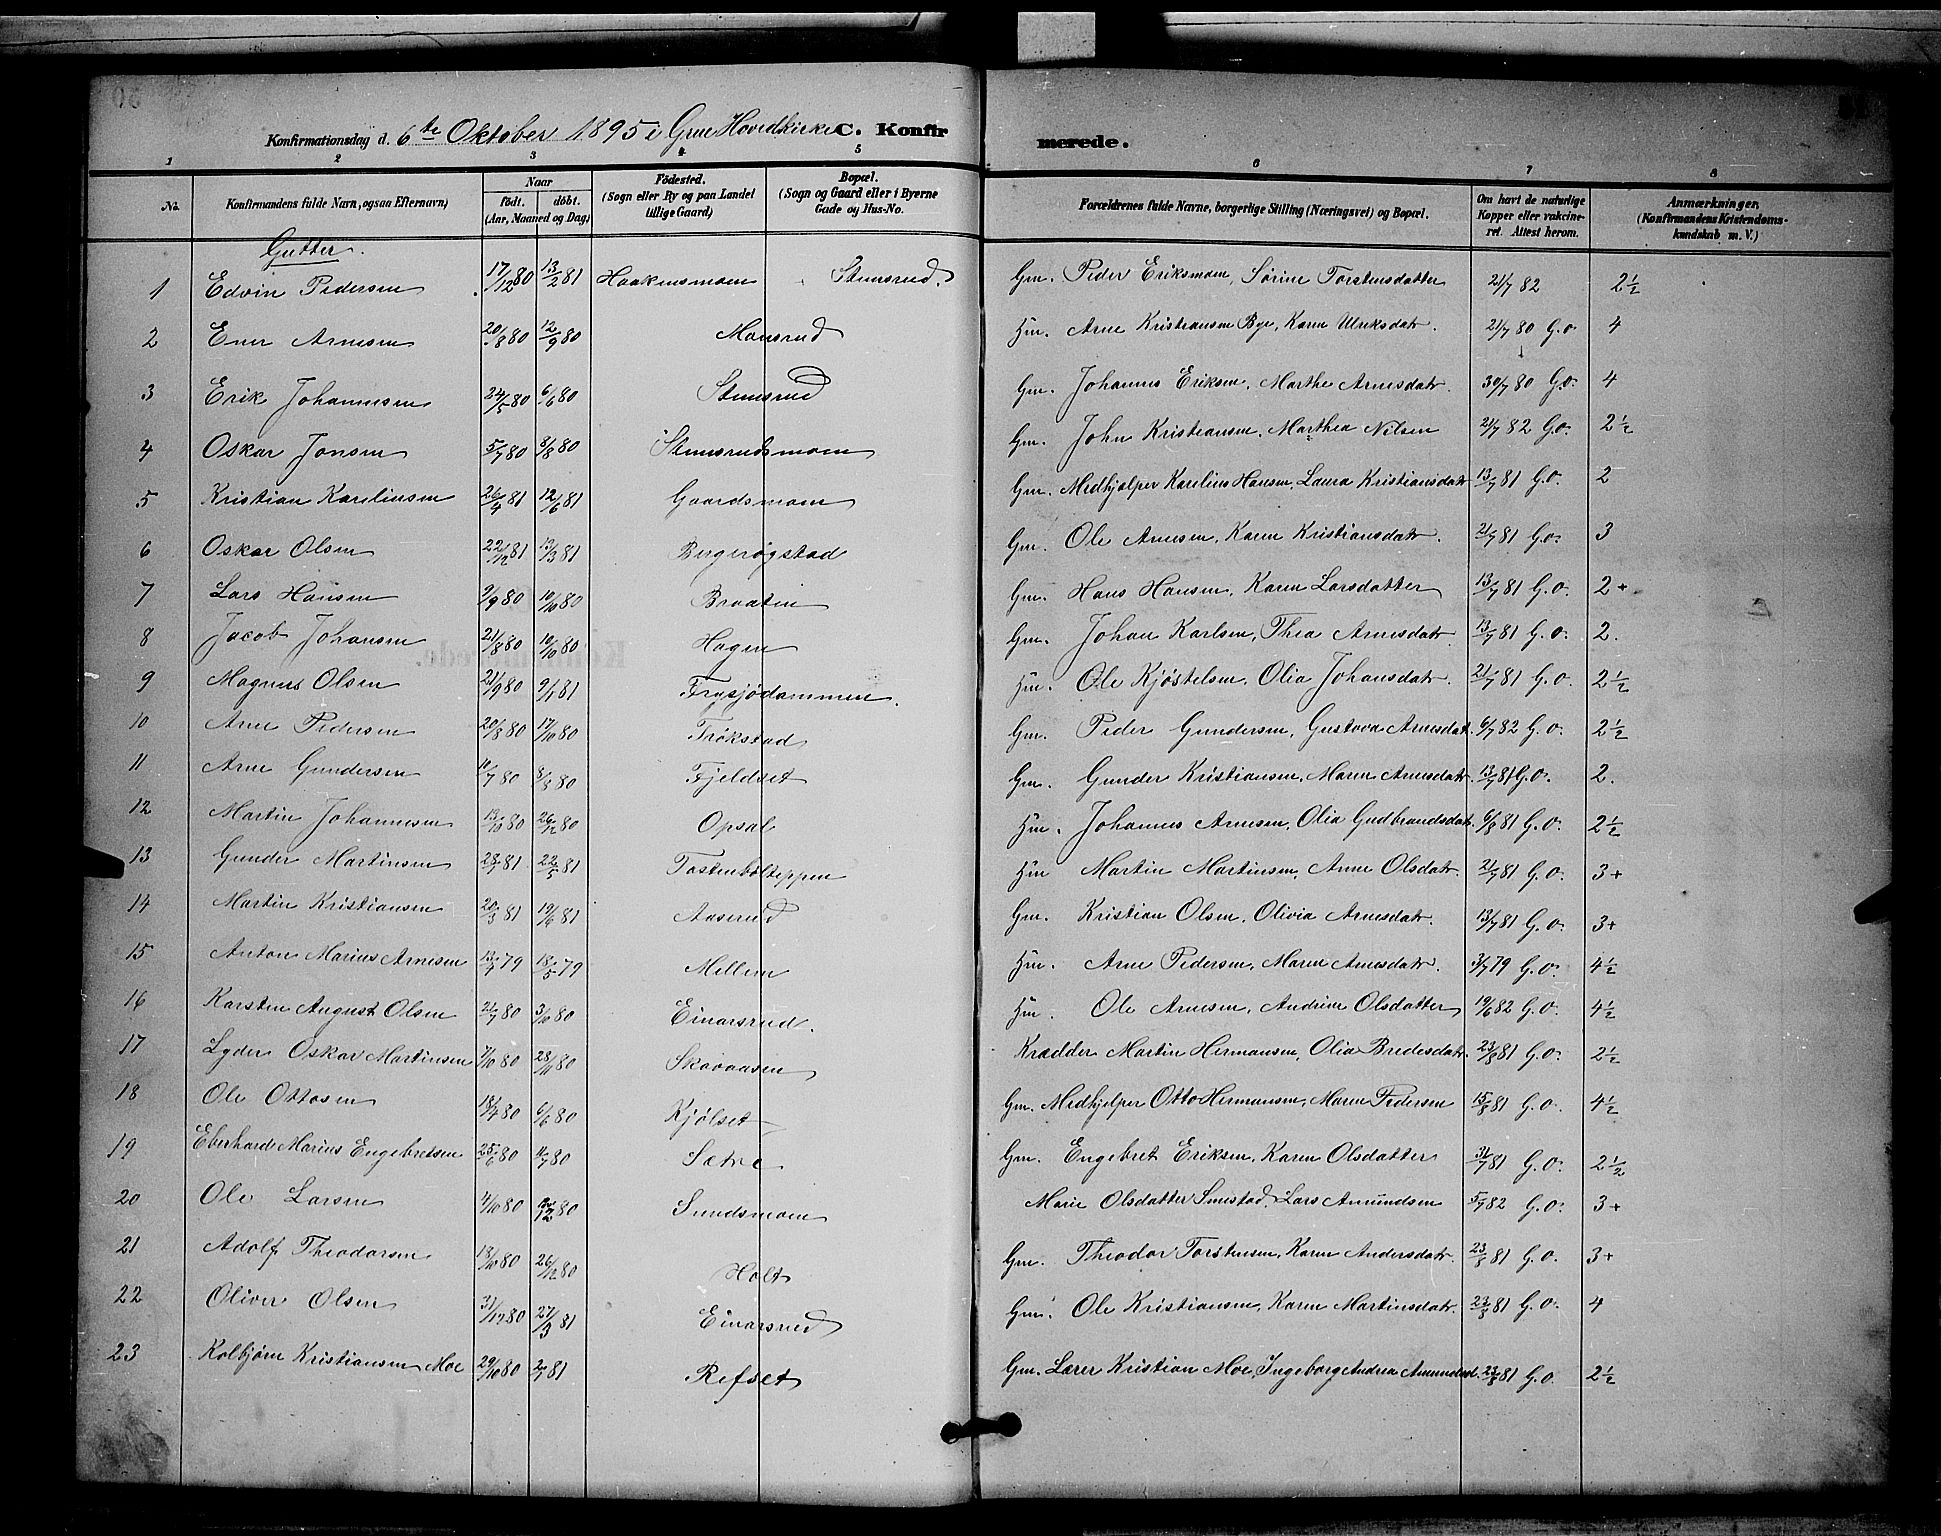 Konfirmationsdag d. 6te Oktober 1895 i Grue Hovedkirke C. Konfirmerede.
1 2 3 4 5 6 7 8
No. Konfirmandens fulde Navn, ogsaa Efternavn) Naar født. døbt. (Aar, Maaned og Dag) Fødested. (Sogn eller By og paa Landet tillige Gaard) Bopæl. (Sogn og Gaard eller i Byerne Gade og Hus-No. Forældrenes fulde Navne, borgerlige Stilling (Næringsvei) og Bopæl. Om havt de naturlige Kopper eller vakcineret. Attest herom. Anmærkninger. (Konfirmandens Kristendomskundskab m. V.)
Gutter.
1 Edvin Pedersen 17/12 80 13/2 81 Haakensmoen Stemsrud. Gm. Peder Eriksmoen, Sørine Torstensdatter 21/7 82 2½
2 Arnesen 20/8 80 12/9 80 Monsrud Hm. Arne Kristiansen Bye, Karen Ulriksdatr. 21/7 80 G.o. 4
3 Erik Johannesen 24/5 80 6/6 80 Stemsrud Gm. Johannes Eriksen, Marthe Arnesdatr. 30/7 80 G.o. 4
4 Oskar Jonsen 5/7 80 8/8 80 Stemsrudsmoen Gm. John Kristiansen, Marthea Nilsen 21/7 82 G.o. 2½
5 Kristian Karelinsen 26/4 81 12/6 81 Gaardsmoen Gm. Medhjælper Karelius Hansen, Laura Kristiansdatr 13/7 81 G.o. 2
6 Oskar Olsen 22/12 81 13/3 81 Bergerøgstad Gm. Ole Arnesen, Karen Kristiansdatr. 21/7 81 G.o. 3
7 Lars Hansen 9/9 80 10/10 80 Braaten Gm. Hans Hansen, Karen Larsdatter 13/7 81 G.o. 2+
8 Jacob Johansen 21/8 80 10/10 80 Hagen Gm. Johan Karlsen, Thea Arnesdatr 13/7 81 G.o. 2.
9 Magnus Olsen 21/9 80 9/1 81 Frysjødammen. Hm. Ole Kjøstelsen, Olia Johansdatr. 21/7 81 G.o. 2½
10 Arne Pedersen 20/8 80 17/10 80 Trøkstad Gm. Peder Gundersen, Gustava Arnesdat. 6/7 82 G.o. 2½
11 Arne Gundersen 11/7 80 8/8 80 Fjeldset Gm. Gunder Kristiansen, Maren Arnesdatr. 13/7 81 G.o. 2.
12 Martin Johannesen 13/10 80 26/12 80 Opsal Hm. Johannes Arnesen, Olia Gudbrandsdatr. 6/8 81 G.o. 2½
13 Gunder Martinsen 81 22/5 81 Hm Martin Martinsen, Anne Olsdatr. 21/7 81 G.o. 3+
14 Martin Kristiansen 20/3 81 19/6 81 Aaserud Gm. Kristian Olsen, Olivia Arnesdatr. 13/7 81 G.o. 3+
15 Anton Marius Arnesen 79 18/5 79 Mellem Hm. Arne Pedersen, Maren Arnesdatr. 3/7 79 G.o. 4½
16 Karsten August Olsen 21/7 80 3/10 80 Einarsrud. Hm. Ole Arnesen, Andrine Olsdatter 19/6 82 G.o. 4½
17 Lyder Oskar Martinsen 7/10 80 28/11 80 Skaraasen Krædder Martin Hermansen, Olia Bredesdatr. 23/8 81 G.o. 2½
18 Ole Ottosen 18/4 80 6/6 80 Kjølset Gm. Medhjelper Otto Hermansen, Maren Pedersen 15/8 81 G.o. 4½
19 Eberhard Marius Engebretsen 25/6 80 11/7 80 Sætre Gm. Engebret Eriksen, Karen Olsdatter 81 G.o. 2½
20 Ole Larsen 4/10 80 80 Sundsmoen Marie Olsdatter Smestad, Lars Amundsen 5/7 82 G.o. 3+
21 Adolf Theodorsen 18/10 80 26/12 80 Holt Gm. Theodor Torstensen, Karen Andersdatr. 23/8 81 G.o. 3+
22 Oliver Olsen 31/12 80 27/3 81 Einarsrud Gm. Ole Kristiansen, Karen Martinsdatr. 23/8 81 G.o. 4
23 Kolbjørn Kristiansen Moe 29/10 80 81 Refset Gm. Lærer Kristian Moe, Ingeborg Andrea Amundsd. 23/8 81 G.o. 2½